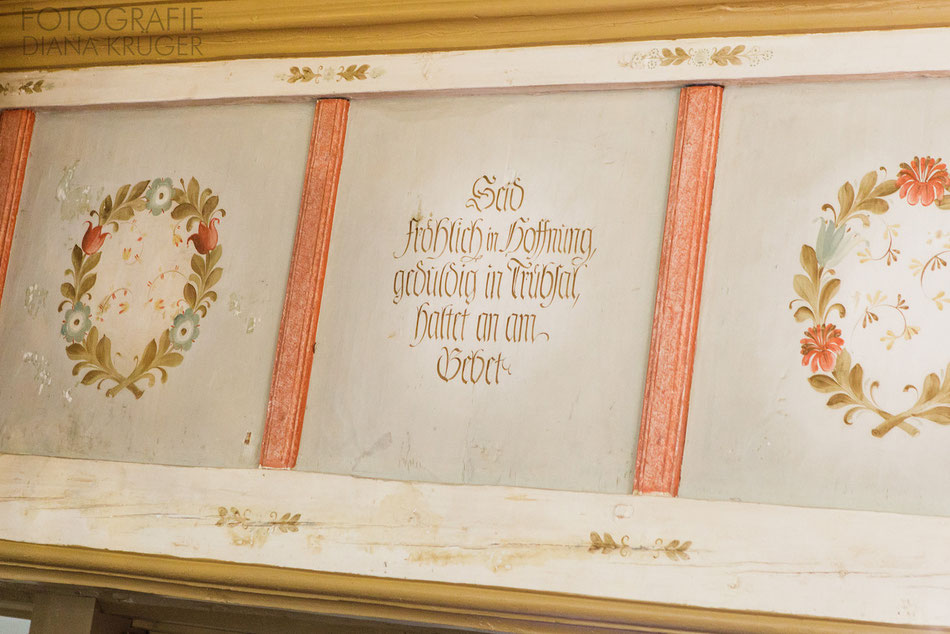 FOTOGRAFIE
DIANA KRÜGER
Seid
fröhlich in Hoffnung,
geduldig in Trübsal,
haltet an am
Gebet